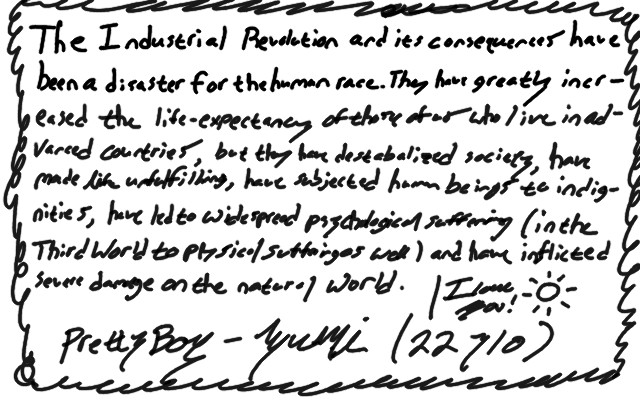 The Industrial Revolution and its consequences have
been a disaster for the human race. They have greatly incr-
eased the life-expectancy of those of us who live in ad-
vanced countries, but they have destabalized society, have
made life unfulfilling, have subjected human beings to indig-
nities, have led to widespread psychological suffering (in the
Third World to physical sufferings well) and have inflicted
severe damage on the natural world.
I love
you!
Pretty Boy - (22 y/o)